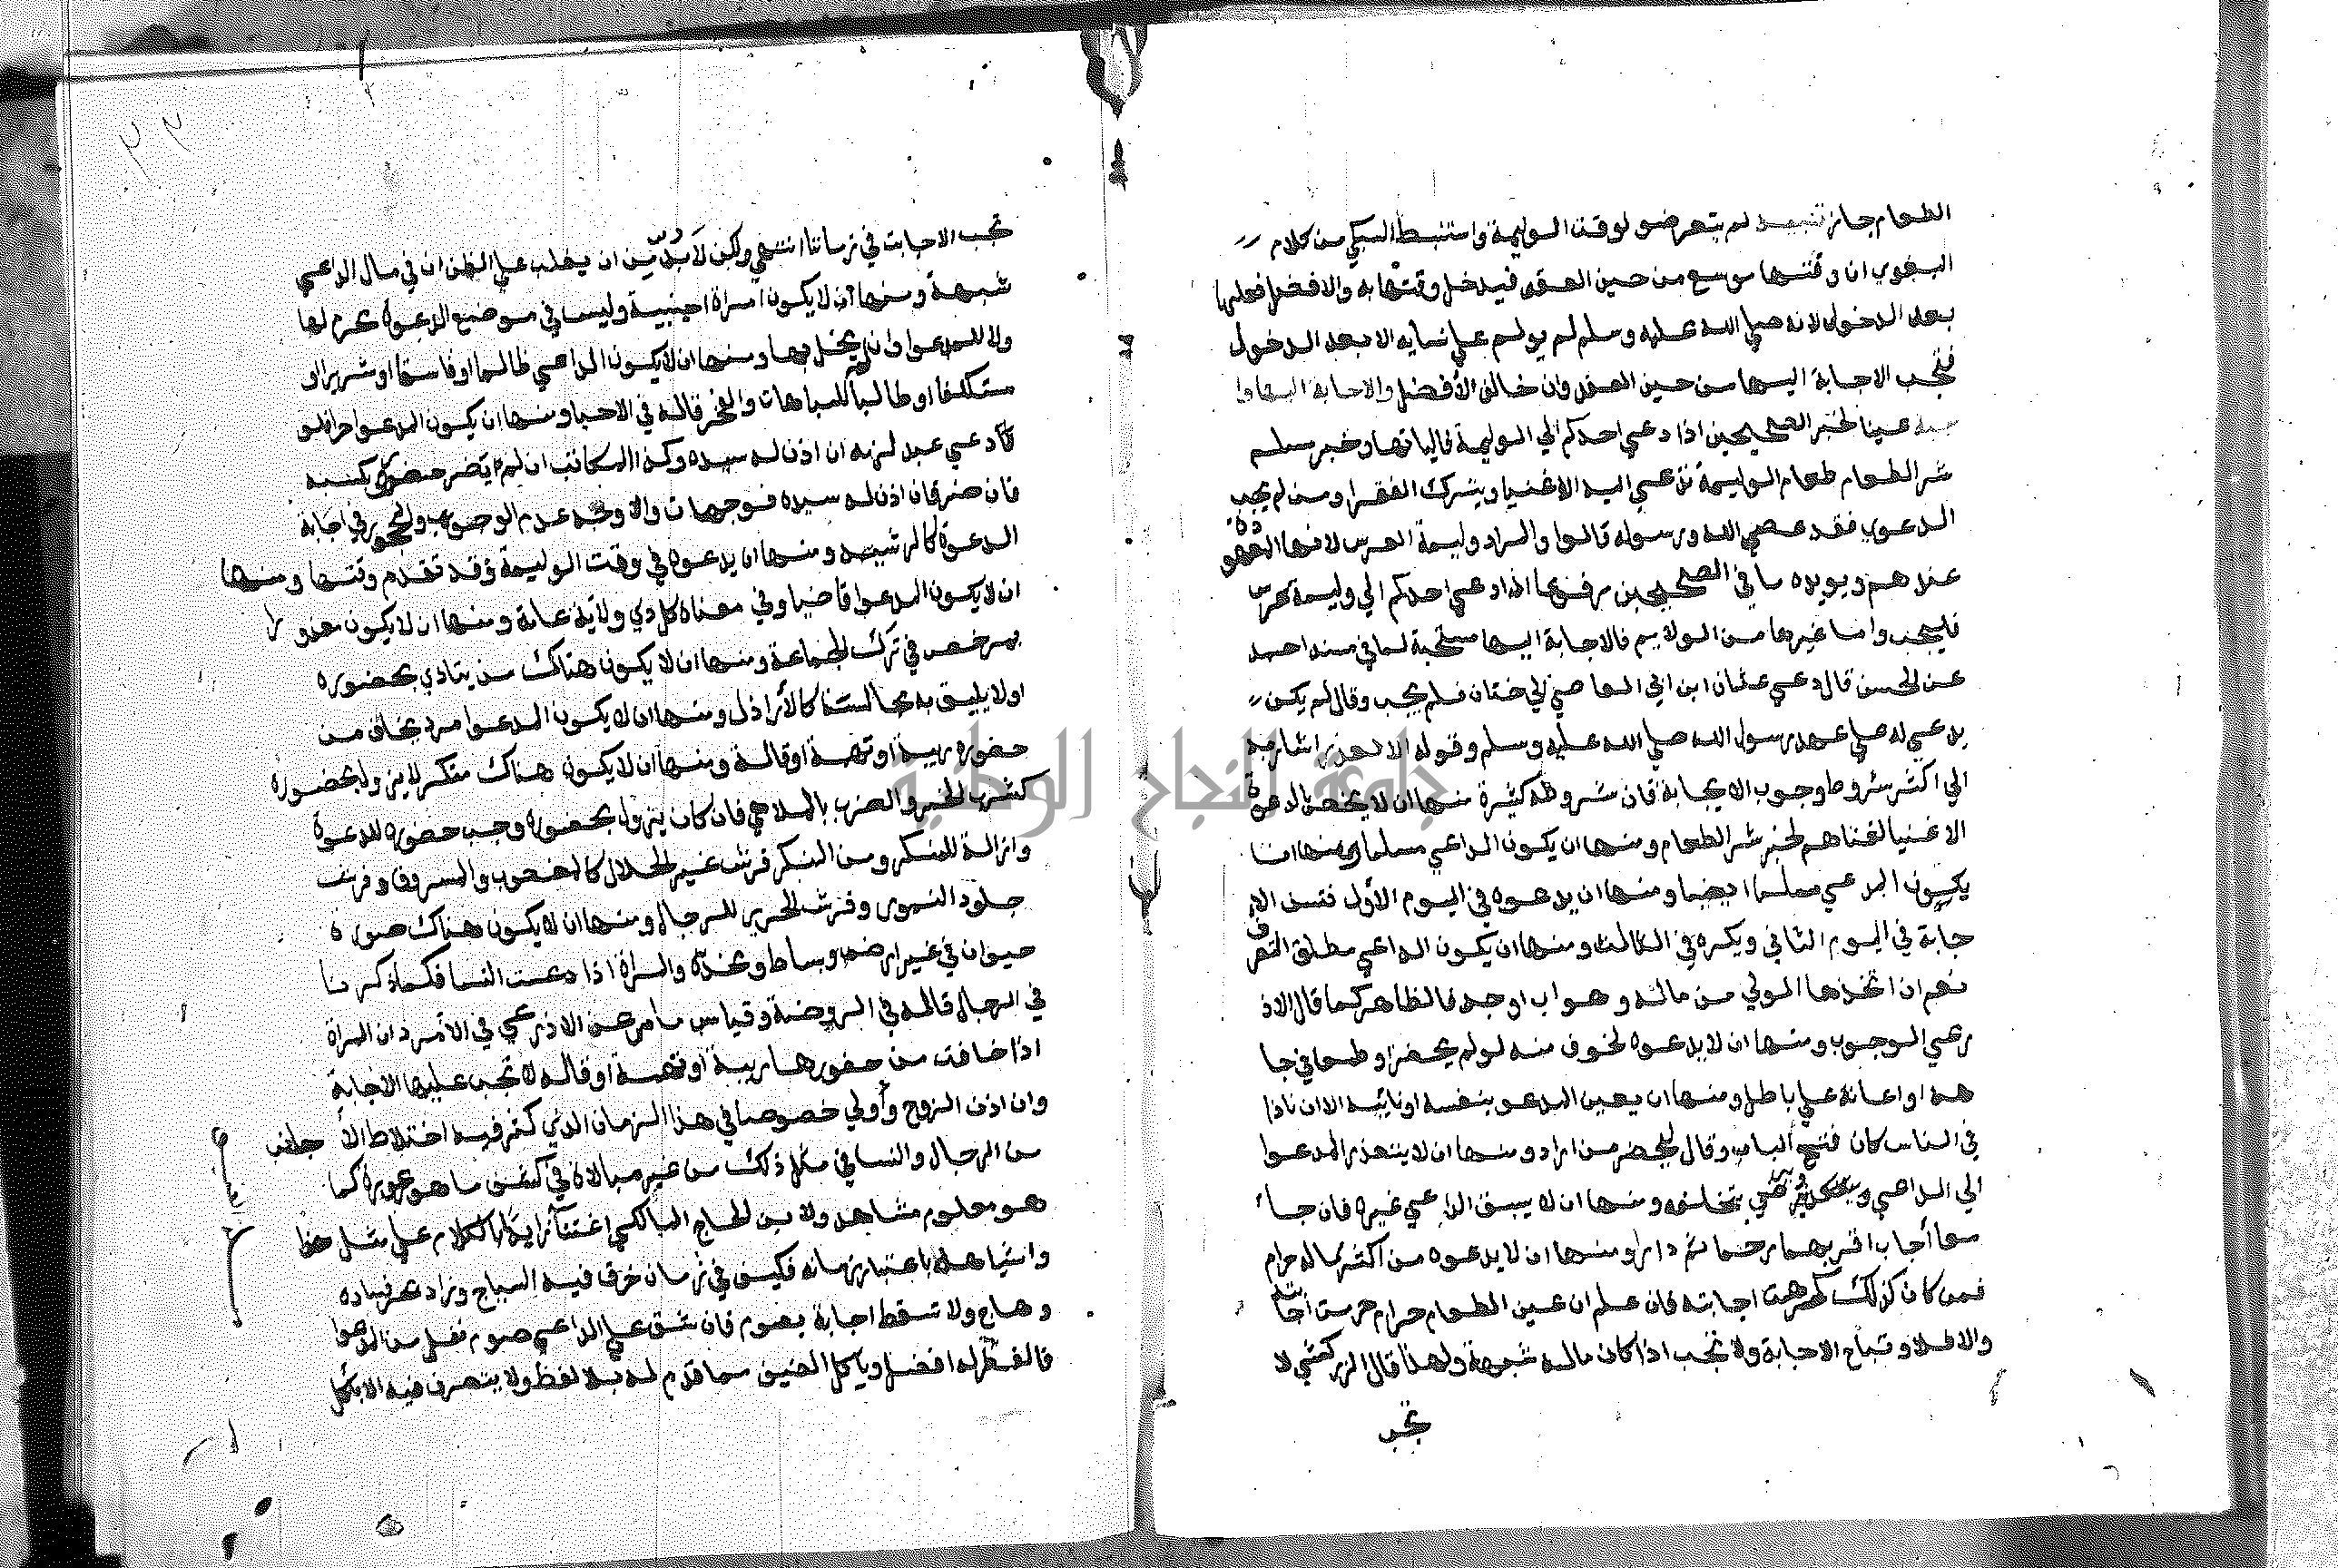 الطعام جائز تنبيه لم يتعرضو لوقت الوليمة واستنبط السبكي من كلام
البغوي ان وقتها موسع من حين العقد فيدخل وقتها به والافضل فعلها
بعد الدخول لانه صلي الله عليه وسلم لم يولم علي نسايه الا بعد الدخول
فتجب الاجابة اليها من حين العقد وان خالف الأفضل والاجابة اليها وا
جبة عينا لخبر الصحيحين اذا دعي احدكم الي الوليمة فلياتها وخبر مسلم
شر الطعام طعام الوليمة تدعي اليه الاغنيا ويترك الفقرا ومن لم يجب
الدعوي فقد عصي الله ورسوله قالوا والمراد وليمة العرس لانها المعهو دة
عندهم ويويده ما في الصحيحين مرفوعا اذا دعي احدكم الي وليمة عرس
فليجب واما غيرها من الولايم فالاجابة اليها مستحبة لما في مسند احمد
عن الحسن قال دعي عثمان ابن ابي العاصي الي ختان فلم يجب وقال لم يكن
يدعي له علي عهد رسول الله صلي الله عليه وسلم وقوله الا لعذر اشار به
الي اكثر شروط وجوب الاجابة فان شروطه كثيرة منها ان لا يخص بالدعوة
الاغنيا لغناهم لخبر شر الطعام ومنها ان يكون الداعي مسلما ومنها ان
يكون المدعي مسلما ايضا ومنها ان يدعوه في اليوم الأول فتسن الا
جابة في اليوم الثاني ويكره في الثالث ومنها ان يكون الداعي مطلق التصرف
نعم ان اتخذها الولي من ماله وهو اب او جد فالظاهر كما قال الاذ
رعي الوجوب ومنها ان لا يدعوه لخوف منه لو لم يحضر او طمعا في جا
هه او اعانة علي باطل ومنها ان يعين المدعو بنفسه او نائبه الا ان نادا
في الناس كان فتح الباب وقال ليحضر من اراد ومنها ان لا يتعذر المدعوا
الي الداعي بتخلفه ومنها ان لا يسبق الداعي غيره فان جاء
معا أجاب اقربهما رحما ثم دارا ومنها ان لا يدعوه من اكثر ماله حرام
فمن كان كذلك كرهت اجابته فان علم ان عين الطعام حرام حرمت اجابته
والا فلا وتباح الاجابة ولا تجب اذا كان ماله شبهة ولهذا قال الزركشي لا
تجب
٣٣
تجب الاجابة في زماننا انتهي ولكن لا بد من ان يغلب علي الظن ان في مال الداعي
شبهة ومنها أن لا يكون امراة اجنبية وليس في موضع الدعوة محرم لها
ولا للمدعوا وان لم يخل بها ومنها ان لا يكون الداعي ظالما او فاسقا او شريرا او
متكلفا او طالبا للمباهات والفخر قاله في الاحيا ومنها ان يكون المدعوا حرا فلو
دعي عبد لزمه ان اذن له سيده وكذا المكاتب ان لم يضر حضوره بكسبه
فان ضر فان اذن له سيده فوجهان والا وجه عدم الوجوب والمحجور في اجابة
الدعوة كالرشيد ومنها ان يدعوه في وقت الوليمة وقد تقدم وقتها ومنها
ان لا يكون المدعوا قاضيا وفي معناه كل ذي ولاية عامة ومنها ان لا يكون معذورا
بمرخص في ترك الجماعة ومنها ان لا يكون هناك من يتاذي بحضوره
او لا يليق به مجالسته كالأراذل ومنها ان لا يكون المدعوا امرد يخاف من
حضوره ريبة او تهمة او قالة ومنها ان لا يكون هناك منكر لا يزول بحضوره
كشرب الخمر والضرب بالملاهي فان كان يزول بحضوره وجب حضوره للدعوة
وازالة للمنكر ومن المنكر فرش غير الحلال كالمغصوب والمسروق وفرش
جلود النمور وفرش الحرير للرجال ومنها ان لا يكون هناك صورة
حيوان في غير ارض وبساط ومخدة والمراة اذا دعت النسا فكما ذكرنا
في الرجال قاله في الروضة وقياس ما مر عن الاذرعي في الأمرد ان المراة
اذا خافت من حضورها ريبة او تهمة او قالة لا تجب عليها الاجابة
وان اذن الزوج وأولي خصوصا في هذا الزمان الذي كثر فيه اختلاط الأ جانب
من الرجال والنسا في مثل ذلك من غير مبالاة في كشف ما هو عورة كما
هو معلوم مشاهد ولابن الحاج المالكي اغتنا زايد الكلام علي مثل هذا
واشباهه باعتبار زمانه فكيف في زمان خرق فيه السياج وزاد فساده
وهاج ولا تسقط اجابة بصوم فان شق علي الداعي صوم نفل من المدعوا
فالفطر له افضل وياكل الضيف مما قدم له بلا لفظ ولا يتصرف فيه الا باكل
جامعة النجاح الوطنية